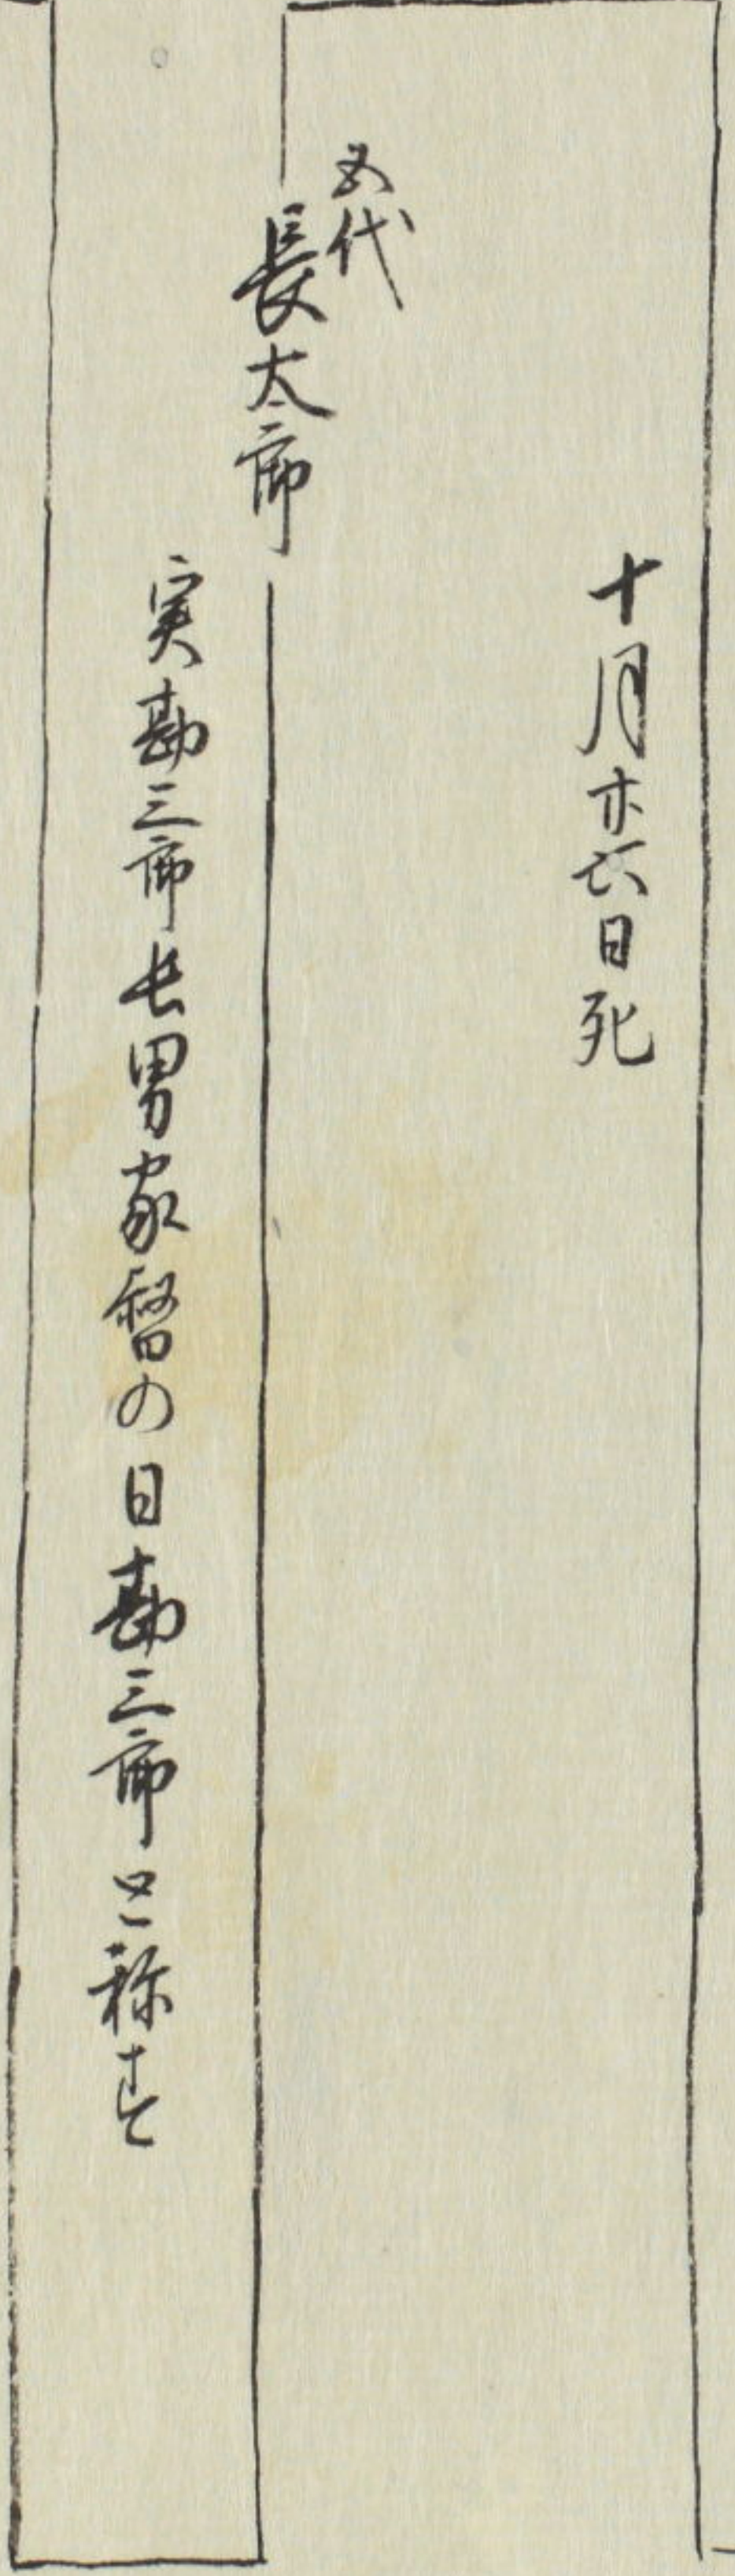 十月廿六日死
五代
長太郎
実勘三郎长男家督の日勘三郎と称す